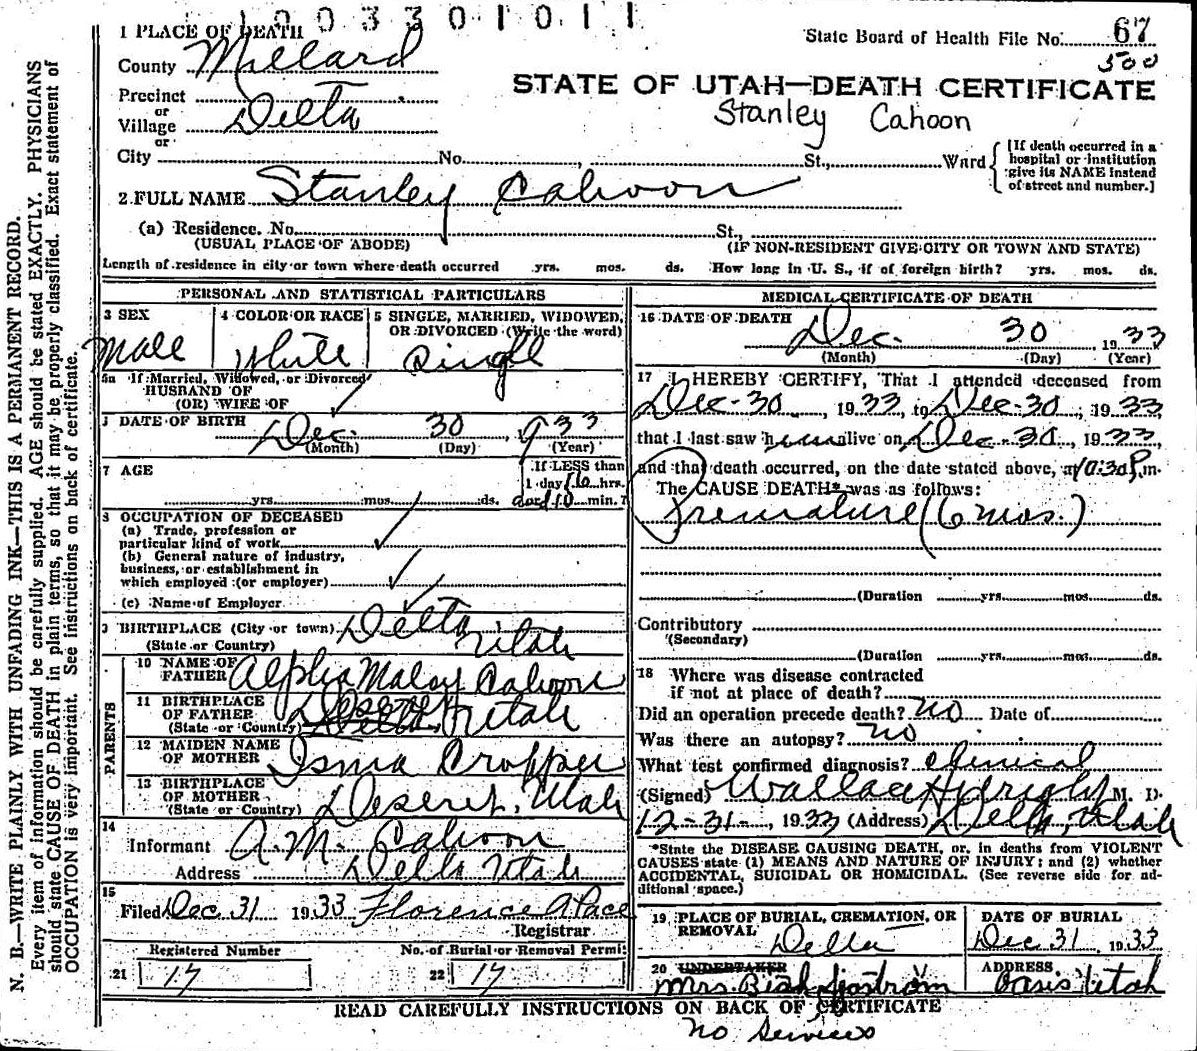 1003301011
1 PLACE OF DEATH
State Board of Health File No. 67
500
County Millard
STATE OF UTAH—DEATH CERTIFICATE
Precinct
or
Village Delta
or
Stanley Cahoon
City No. St., Ward
[If death occurred in a hospital or institution give its NAME instead of street and number.]
2 FULL NAME Stanley Cahoon
(a) Residence. No. St.,
(USUAL PLACE OF ABODE) (IF NON-RESIDENT GIVE CITY OR TOWN AND STATE)
Length of residence in city or town where death occurred yrs. mos. ds. How long in U. S., if of foreign birth? yrs. mos. ds.
PERSONAL AND STATISTICAL PARTICULARS
3 SEX
Male
4 COLOR OR RACE
White
5 SINGLE, MARRIED, WIDOWED, OR DIVORCED (Write the word)
Single
5a If Married, Widowed, or Divorced
HUSBAND OF
(OR) WIFE OF
DATE OF BIRTH
Dec. 30 1933
(Month) (Day) (Year)
7 AGE
If LESS than
1 day hrs.
yrs. mos. ds. or 10 min.?
8 OCCUPATION OF DECEASED
(a) Trade, profession or
particular kind of work
(b) General nature of industry,
business, or establishment in
which employed (or employer)
(c) Name of Employer
9 BIRTHPLACE (City or town) Delta
(State or Country) Utah
PARENTS
10 NAME OF FATHER Alpha Maloy Cahoon
11 BIRTHPLACE OF FATHER Deseret
(State or Country) Utah
12 MAIDEN NAME OF MOTHER Isma Cropper
13 BIRTHPLACE OF MOTHER
(State or Country) Deseret, Utah
14
Informant A. M. Cahoon
Address Delta Utah
15
Filed Dec 31 1933 Florence A Pace
Registrar
Registered Number No. of Burial or Removal Permit
21 17 22 17
MEDICAL CERTIFICATE OF DEATH
16 DATE OF DEATH
Dec. 30 1933
(Month) (Day) (Year)
17 I HEREBY CERTIFY, That I attended deceased from
Dec-30, 1933, to Dec-30, 1933,
that I last saw him alive on Dec-30, 1933,
and that death occurred, on the date stated above, at 10:30 P.m.
The CAUSE DEATH* was as follows:
Premature (6 mos.)
(Duration yrs. mos. ds.
Contributory
(Secondary)
(Duration yrs. mos. ds.
18 Where was disease contracted
if not at place of death?
Did an operation precede death? no Date of
Was there an autopsy? no
What test confirmed diagnosis? Clinical
(Signed) M. D.
12-31-, 1933 (Address) Delta, Utah
*State the DISEASE CAUSING DEATH, or, in deaths from VIOLENT
CAUSES state (1) MEANS AND NATURE OF INJURY; and (2) whether
ACCIDENTAL, SUICIDAL OR HOMICIDAL. (See reverse side for ad-
ditional space.)
19 PLACE OF BURIAL, CREMATION, OR REMOVAL
Delta
DATE OF BURIAL
Dec 31 1933
20 UNDERTAKER
Mrs.
ADDRESS
Oasis Utah
READ CAREFULLY INSTRUCTIONS ON BACK OF CERTIFICATE
no services
N. B.—WRITE PLAINLY WITH UNFADING INK—THIS IS A PERMANENT RECORD.
Every item of information should be carefully supplied. AGE should be stated EXACTLY. PHYSICIANS
should state CAUSE OF DEATH in plain terms, so that it may be properly classified. Exact statement of
OCCUPATION is very important. See instructions on back of certificate.